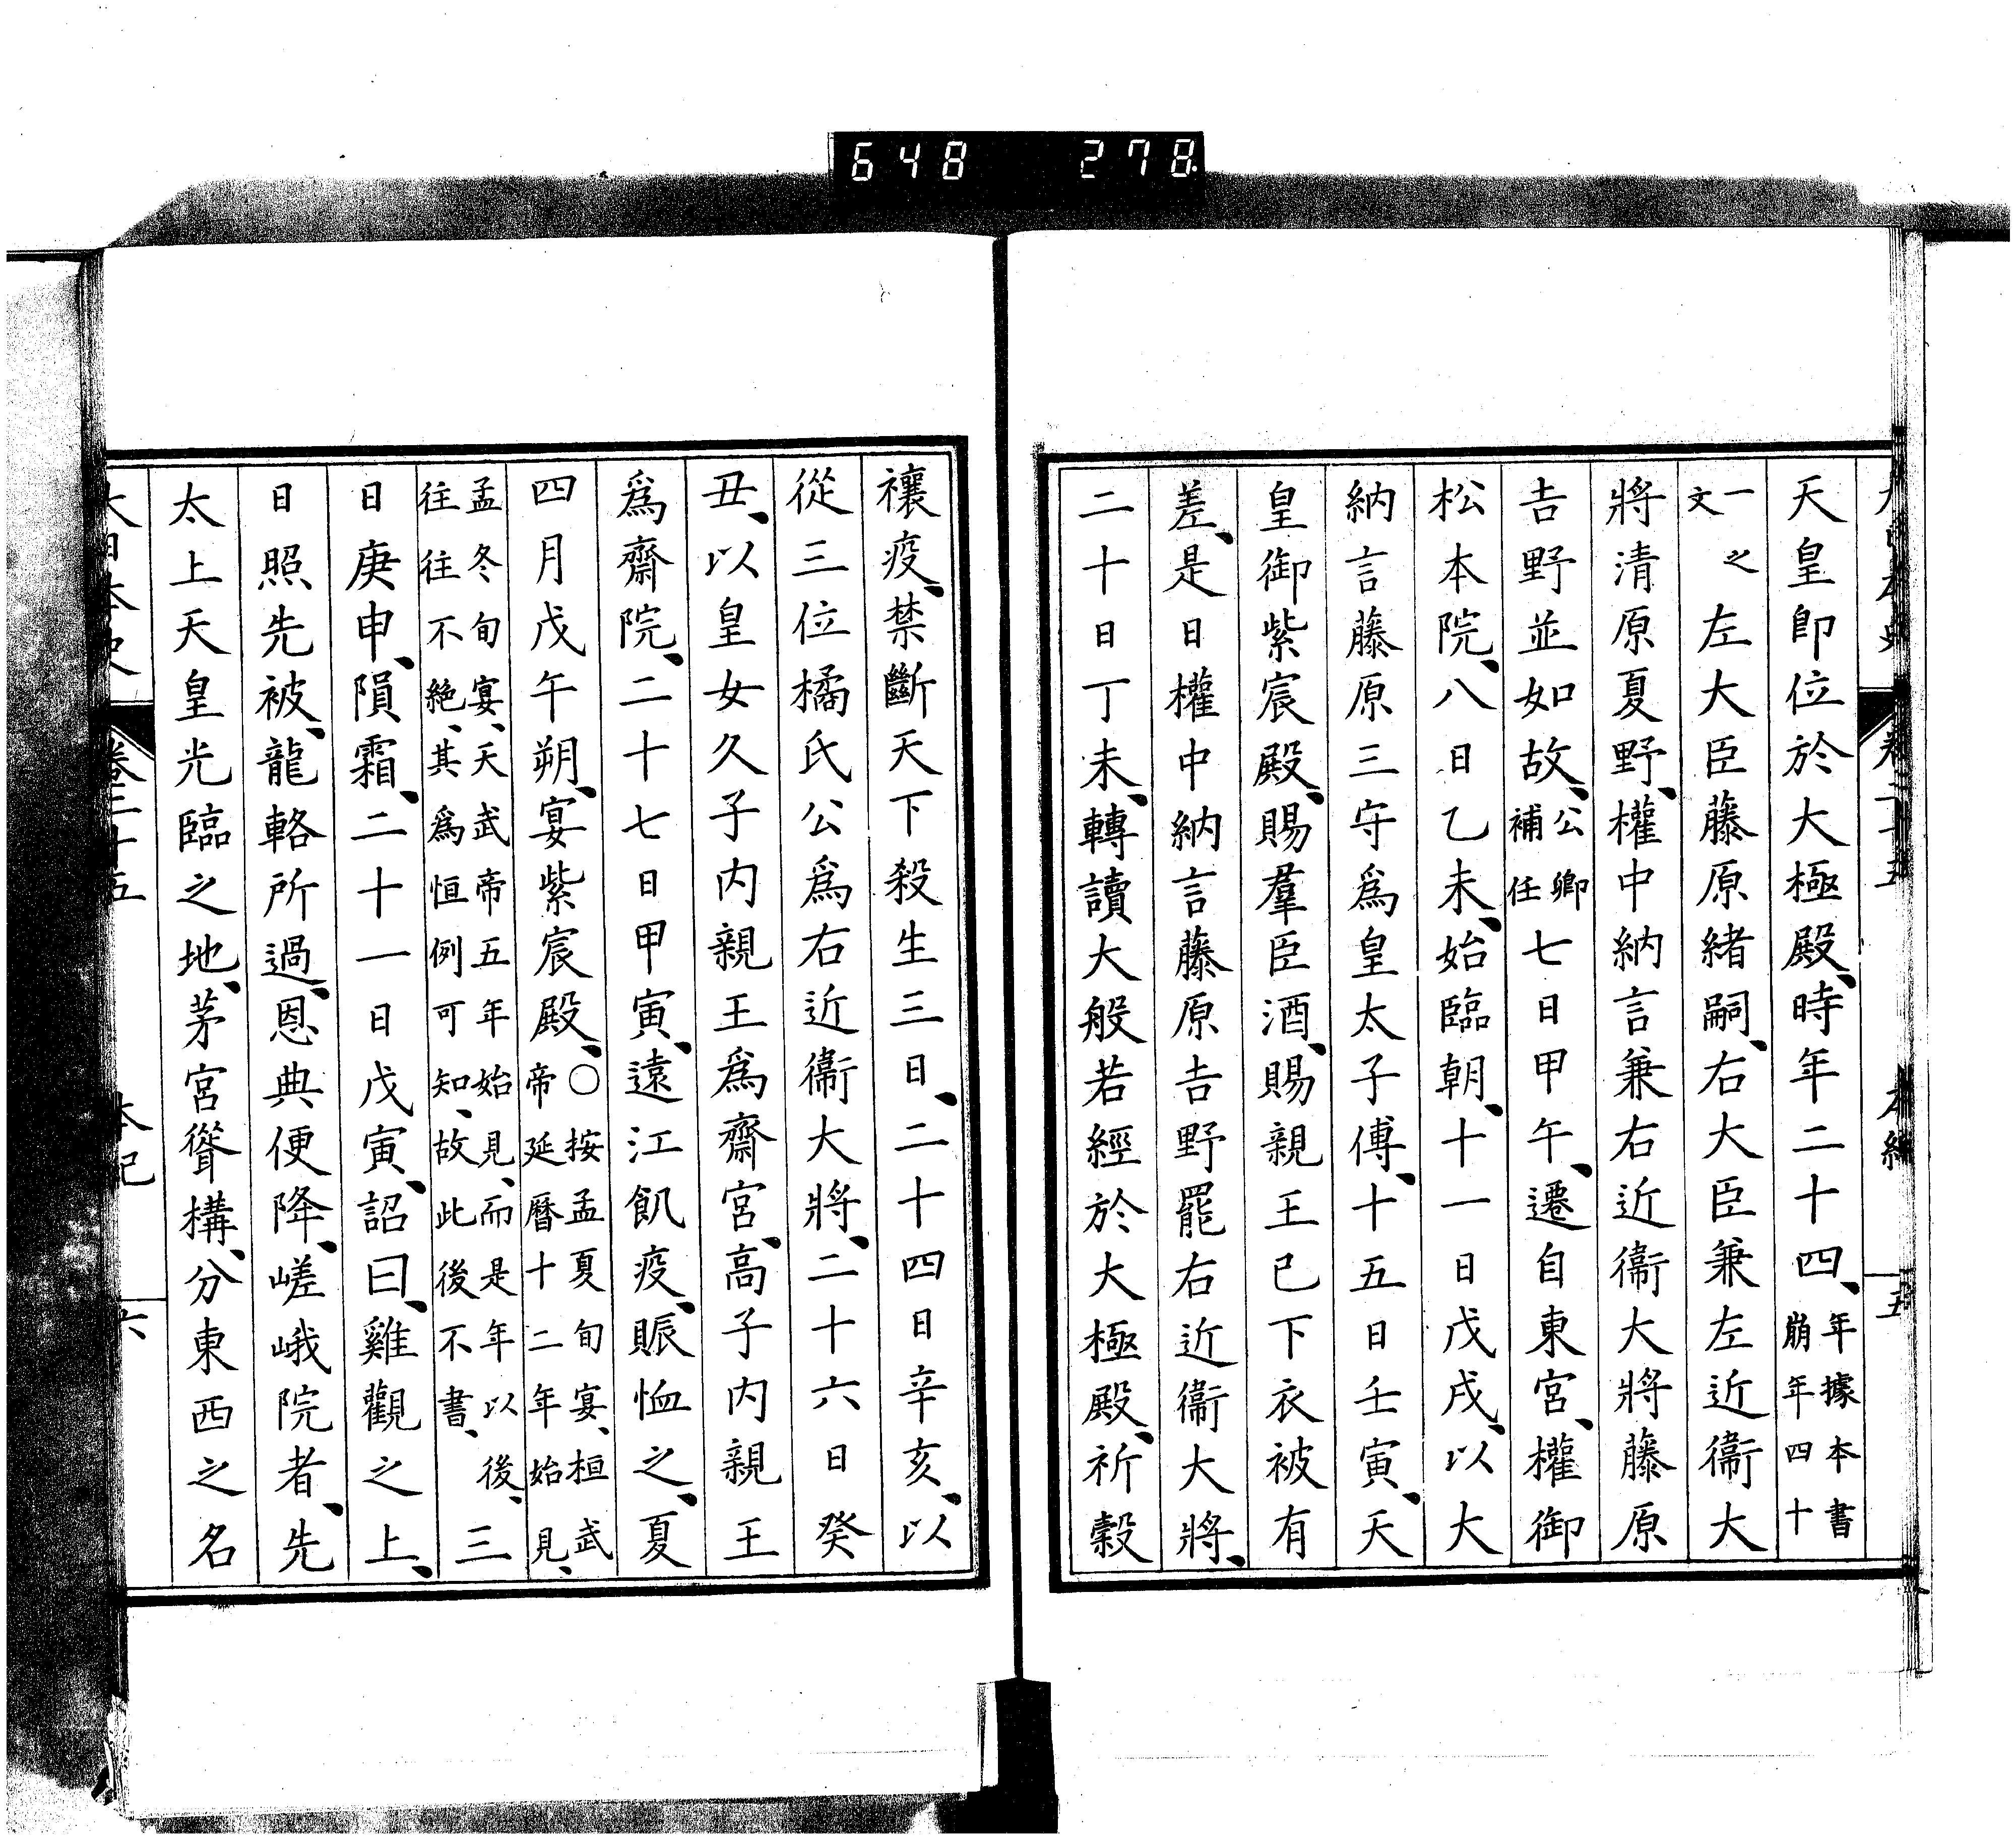 648 278
大日本史 卷三十五 本紀 五
天皇卽位於大極殿、時年二十四、年據本書崩年四十
一之文左大臣藤原緒嗣、右大臣兼左近衞大
將清原夏野、權中納言兼右近衞大將藤原
吉野並如故、公卿補任七日甲午、遷自東宮、權御
松本院、八日乙未、始臨朝、十一日戊戌、以大
納言藤原三守爲皇太子傅、十五日壬寅、天
皇御紫宸殿、賜羣臣酒、賜親王已下衣被有
差、是日權中納言藤原吉野罷右近衞大將、
二十日丁未、轉讀大般若經於大極殿、祈穀
禳疫、禁斷天下殺生三日、二十四日辛亥、以
從三位橘氏公爲右近衞大將、二十六日癸
丑、以皇女久子內親王爲齋宮、高子內親王
爲齋院、二十七日甲寅、遠江飢疫、賑恤之、夏
四月戊午朔、宴紫宸殿、○按孟夏旬宴、桓武帝延曆十二年始見、
孟冬旬宴、天武帝五年始見、而是年以後、往往不絕、其爲恒例可知、故此後不書、三
日庚申、隕霜、二十一日戊寅、詔曰、雞觀之上、
日照先被、龍輅所過、恩典便降、嵯峨院者、先
太上天皇光臨之地、茅宮聳構、分東西之名
大日本史 卷三十五 本紀 六